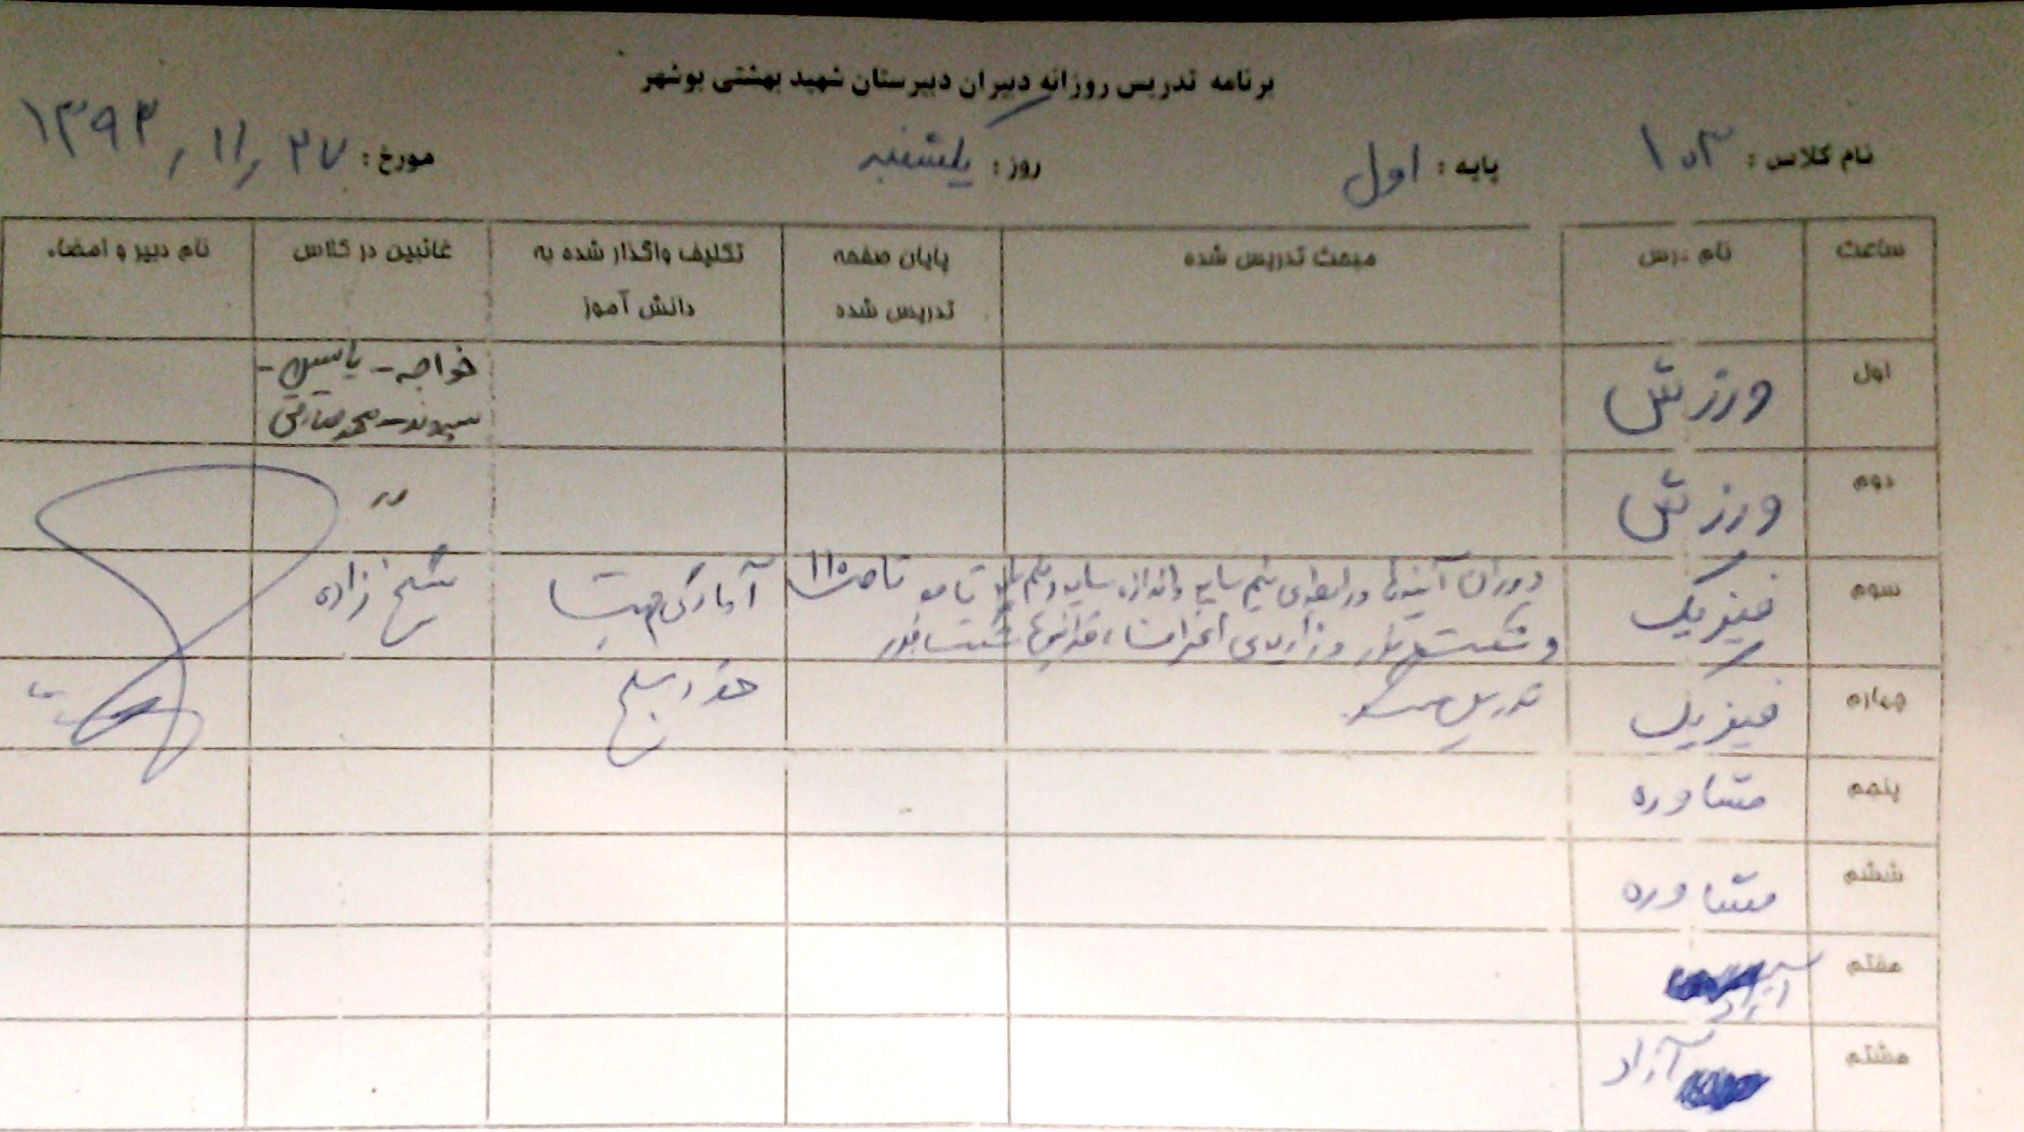 برنامه تدریس روزانه دبیران دبیرستان شهید بهشتی بوشهر
نام کلاس : ۱۰۳ پایه : اول روز : یکشنبه مورخ : ۱۳۹۲/۱۱/۲۷
ساعت نام درس مبحث تدریس شده پایان صفحه تدریس شده تکلیف واگذار شده به دانش آموز غائبین در کلاس نام دبیر و امضاء
اول ورزش خواجه - یاسین -
سپوند - محمدصادقی
دوم ورزش 〃
سوم فیزیک دوران آینه‌ها و نیم سایه و اندازه سایه و نیم سایه تا ص ۱۱۰ آمادگی جهت شیخ زاده
و شکست نور و زاویه‌ی انحراف، قوانین شکست نور
چهارم فیزیک تدریس شد
پنجم مشاوره
ششم مشاوره
هفتم
هشتم آزاد